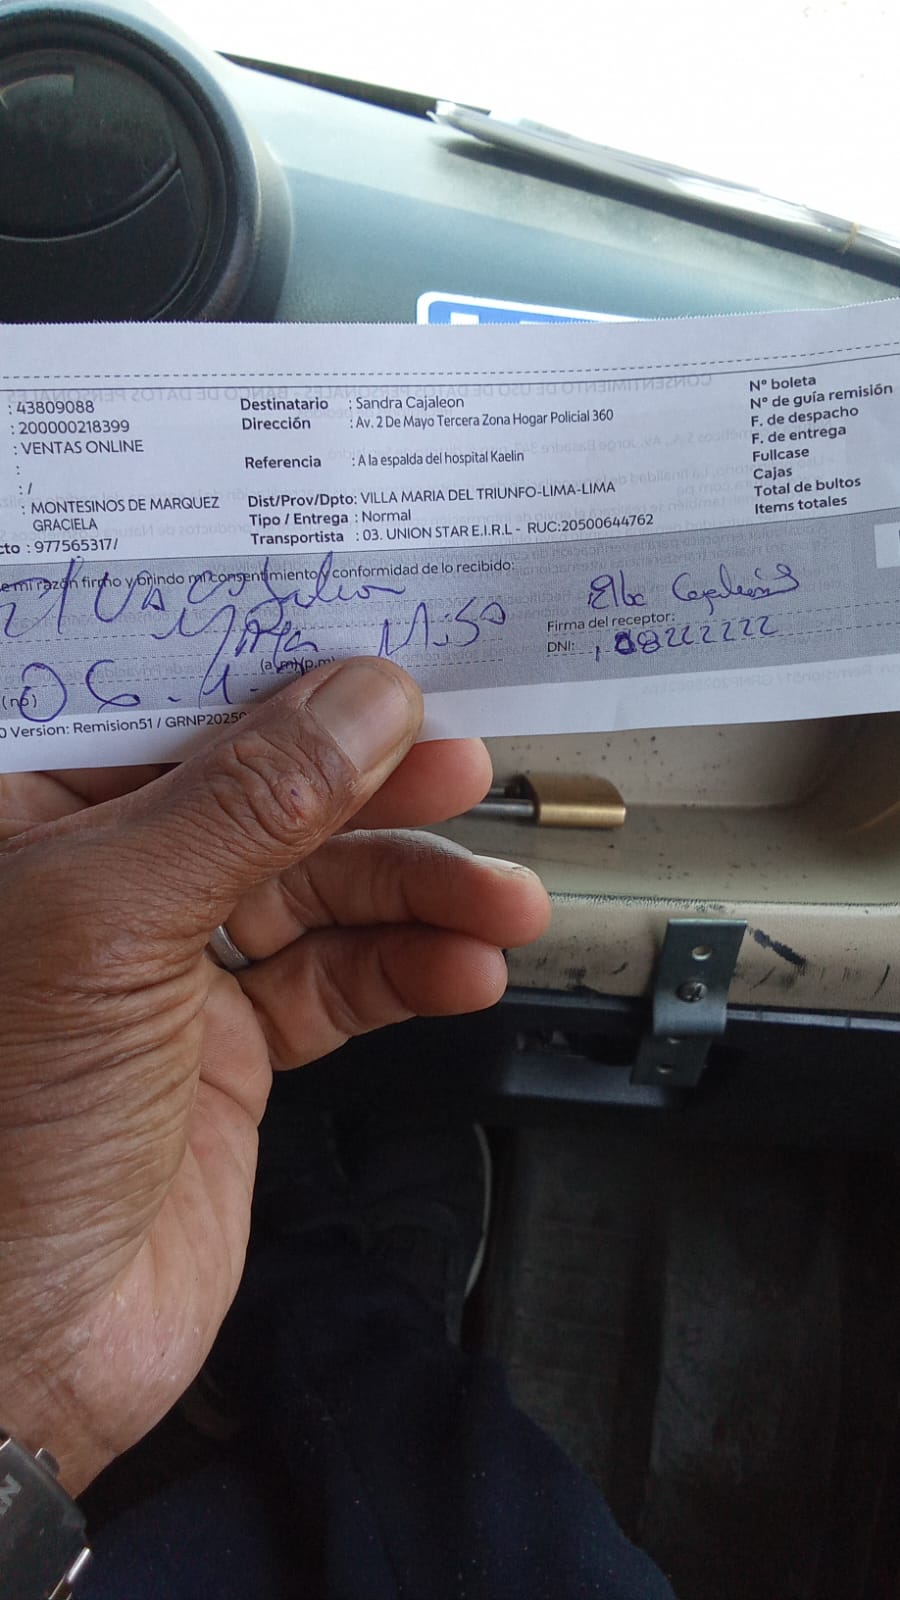 : 43809088
: 200000218399
: VENTAS ONLINE
:
: /
: MONTESINOS DE MARQUEZ
GRACIELA
cto : 977565317/
Destinatario : Sandra Cajaleon
Dirección : Av. 2 De Mayo Tercera Zona Hogar Policial 360
Referencia : A la espalda del hospital Kaelin
Dist/Prov/Dpto: VILLA MARIA DEL TRIUNFO-LIMA-LIMA
Tipo / Entrega : Normal
Transportista : 03. UNION STAR E.I.R.L - RUC:20500644762
Nº boleta
Nº de guía remisión
F. de despacho
F. de entrega
Fullcase
Cajas
Total de bultos
Items totales
e mi razón firmo y brindo mi consentimiento y conformidad de lo recibido:
Elba Cajaleon
11:50
Firma del receptor:
DNI:
(a.m)(p.m)
06
(no)
0 Version: Remision51 / GRNP2025